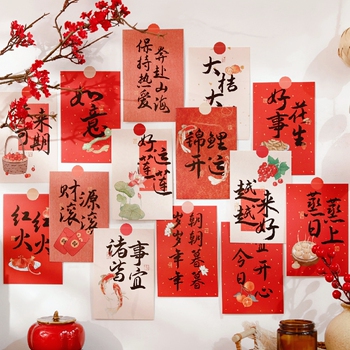 来期
可
如意
奔赴山海
保持热爱
大桔
大
好事
花生
好运
莲莲
锦鲤
开运
财源
滚滚
越来
越好
蒸蒸
日上
红红
火火
诸事
皆宜
朝朝暮暮
岁岁年年
今日
开心